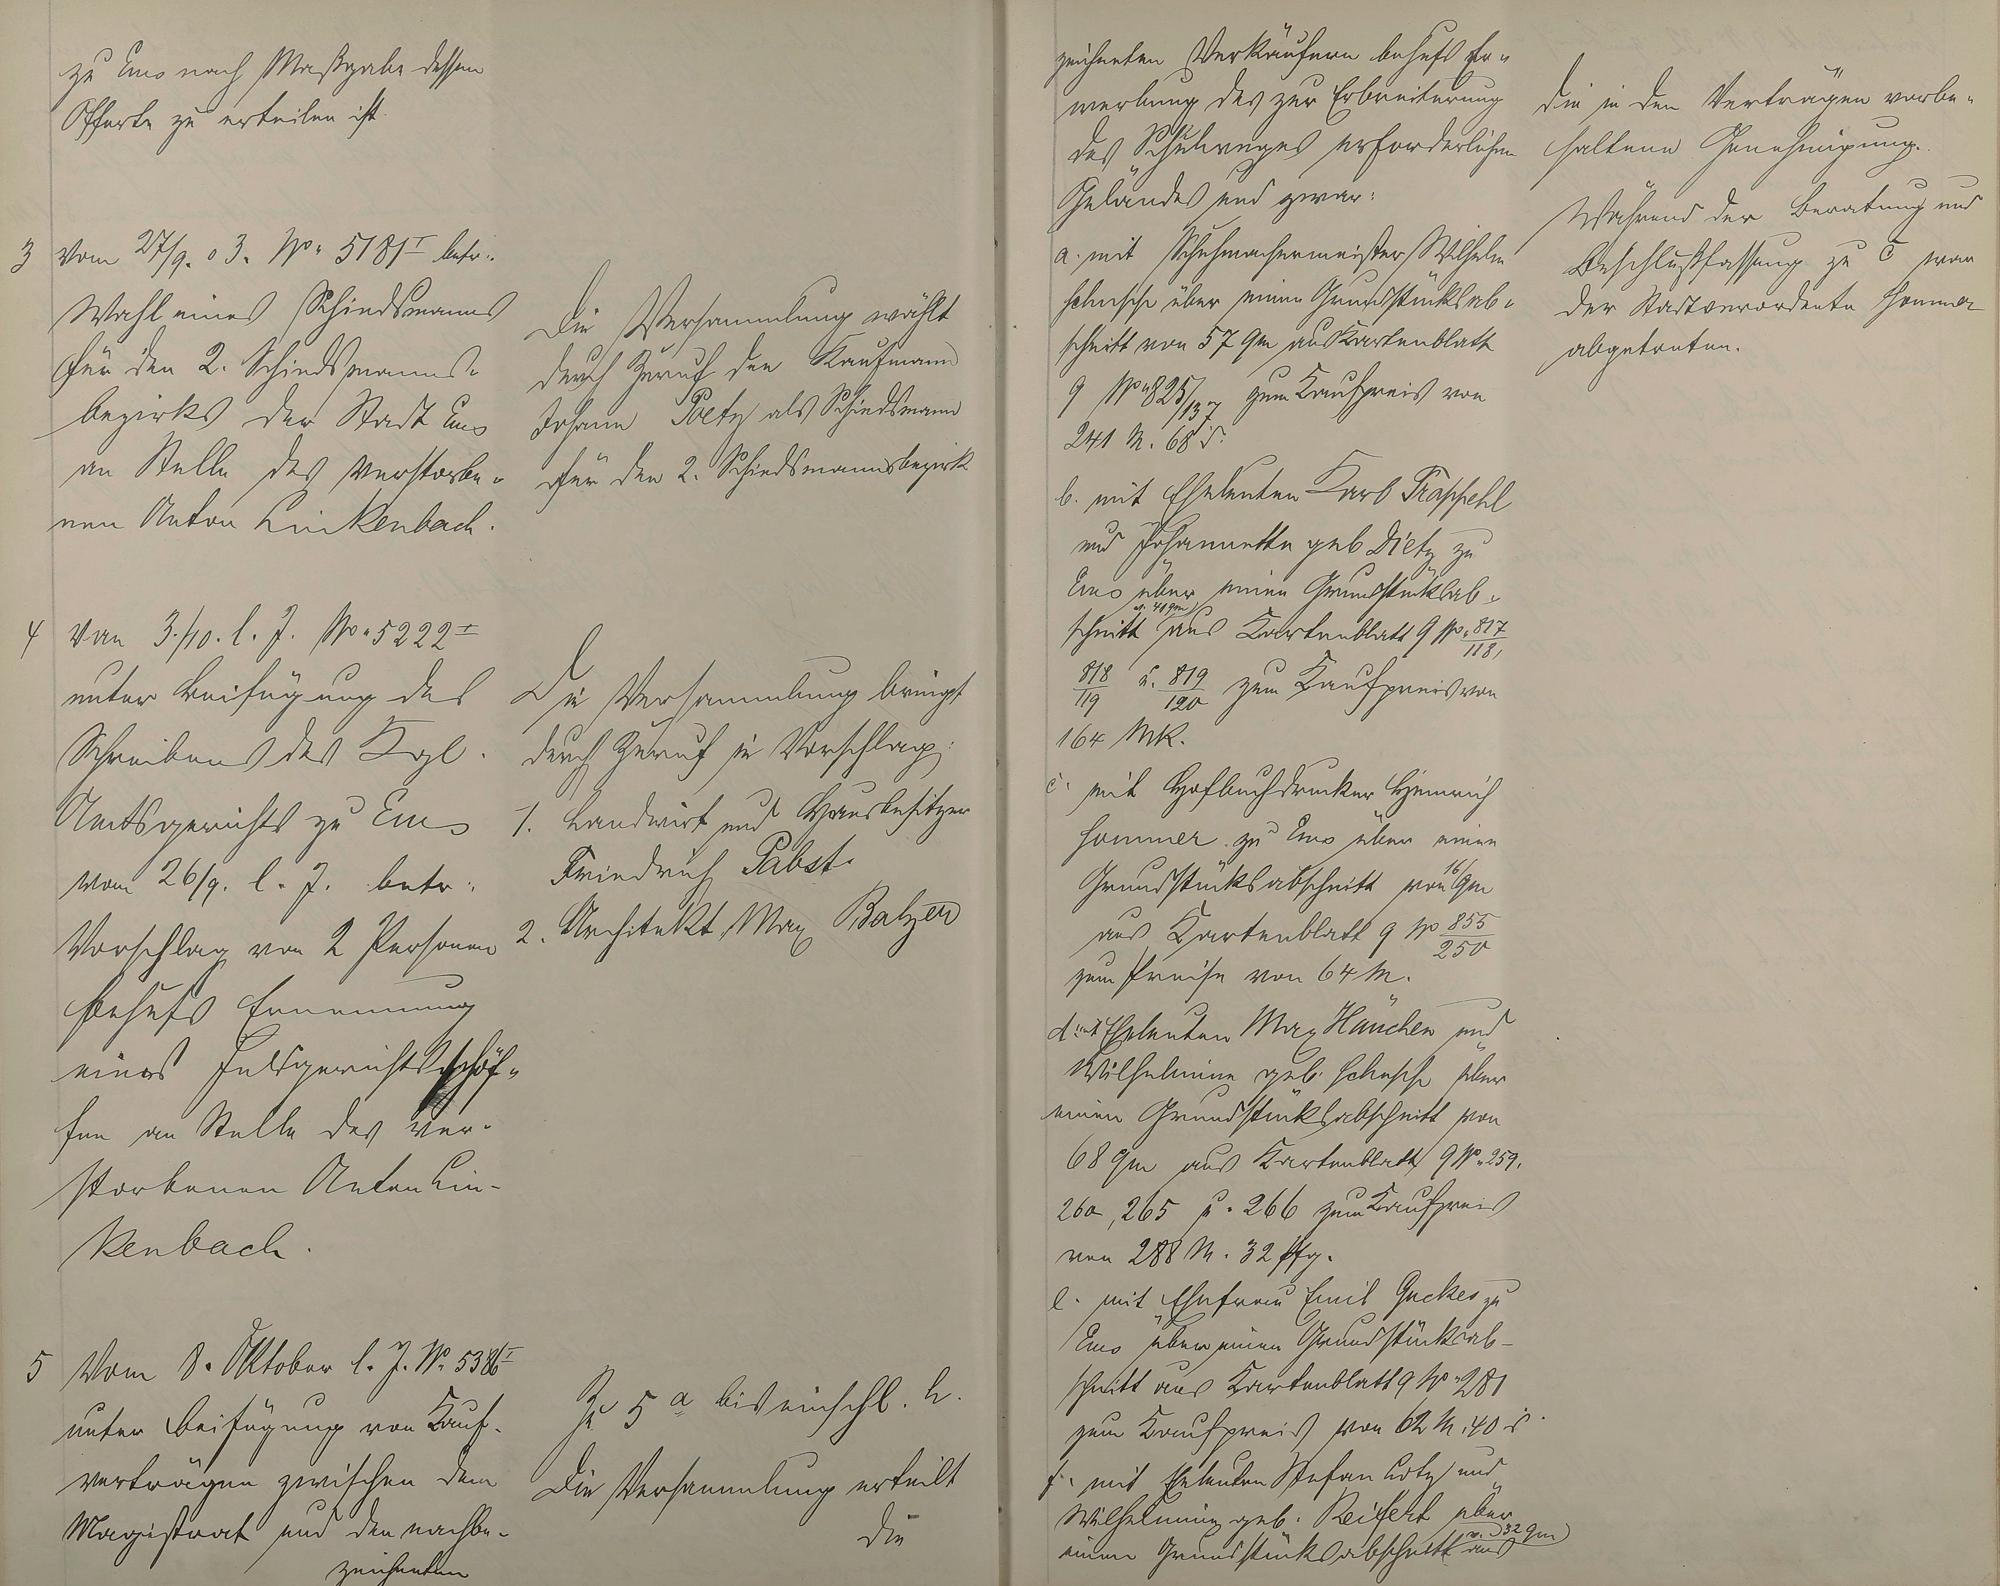 zu Ems nach Maßgabe dessen
Offerte zu erteilen ist.
3 Vom 27/9. 03. No. 5181 I betr.
Wahl eines Schiedsmanns
für den 2. Schiedsmanns-
bezirks der Stadt Ems
an Stelle des verstorbe-
nen Anton Linkenbach.
Die Versammlung wählt
durch Zuruf den Kaufmann
Johann Poetz als Schiedsmann
für den 2. Schiedsmannsbezirk
4 Von 3./10. l. J. No. 5222 I
unter Beifügung des
Schreibens des Kgl.
Amtsgerichts zu Ems
vom 26/9. l. J. betr.
Vorschlag von 2 Personen
behufs Ernennung
eines Feldgerichtsschöf-
fen an Stelle des ver-
storbenen Anton Lin-
kenbach.
Die Versammlung bringt
durch Zuruf in Vorschlag:
1. Landwirt und Hausbesitzer
Friedrich Pabst.
2. Architekt Max Balzer
5 Vom 8. Oktober l. J. No. 5386 I
unter Beifügung von Kauf-
verträgen zwischen dem
Magistrat und den nachbe-
zeichneten
Zu 5 a bis einschl. h.
Die Versammlung erteilt
die
zeichneten Verkäufern behufs Er-
werbung des zur Erbreiterung
des Schulweges erforderlichen
Geländes und zwar:
a. mit Schuhmachermeister Wilhelm
über einen Grundstücksab-
schnitt von 57 qm aus Kartenblatt
9 No. 825/137 zum Kaufpreis von
241 M. 68 d.
b. mit Eheleuten Karl Trappehl
und Johannette geb Dietz zu
Ems über einen Grundstücksab-
v. 41 qm
schnitt aus Kartenblatt 9 No. 817/118,
818/119 u. 819/120 zum Kaufpreis von
164 Mk.
c. mit Hofbuchdrucker Heinrich
Sommer zu Ems über einen
Grundstücksabschnitt von 16 qm
aus Kartenblatt 9 No 855/250
zum Preise von 64 M.
d. mit Eheleuten Max Häuchen und
Wilhelmine geb. über
einen Grundstücksabschnitt von
68 qm aus Kartenblatt 9 No. 259.
260, 265 u. 266 zum Kaufpreis
von 288 M. 32 Pfg.
e. mit Ehefrau Emil Guckes zu
Ems über einen Grundstücksab-
schnitt aus Kartenblatt 9 No. 281
zum Kaufpreis von 62 M. 40 d.
f. mit Eheleuten Stefan Lotz und
Wilhelmine geb. Reifert über
einen Grundstücksabschnitt v. 32 qm aus
die in den Verträgen vorbe-
haltene Genehmigung.
Während der Beratung und
Beschlußfassung zu c war
der Stadtverordnete Sommer
abgetreten.